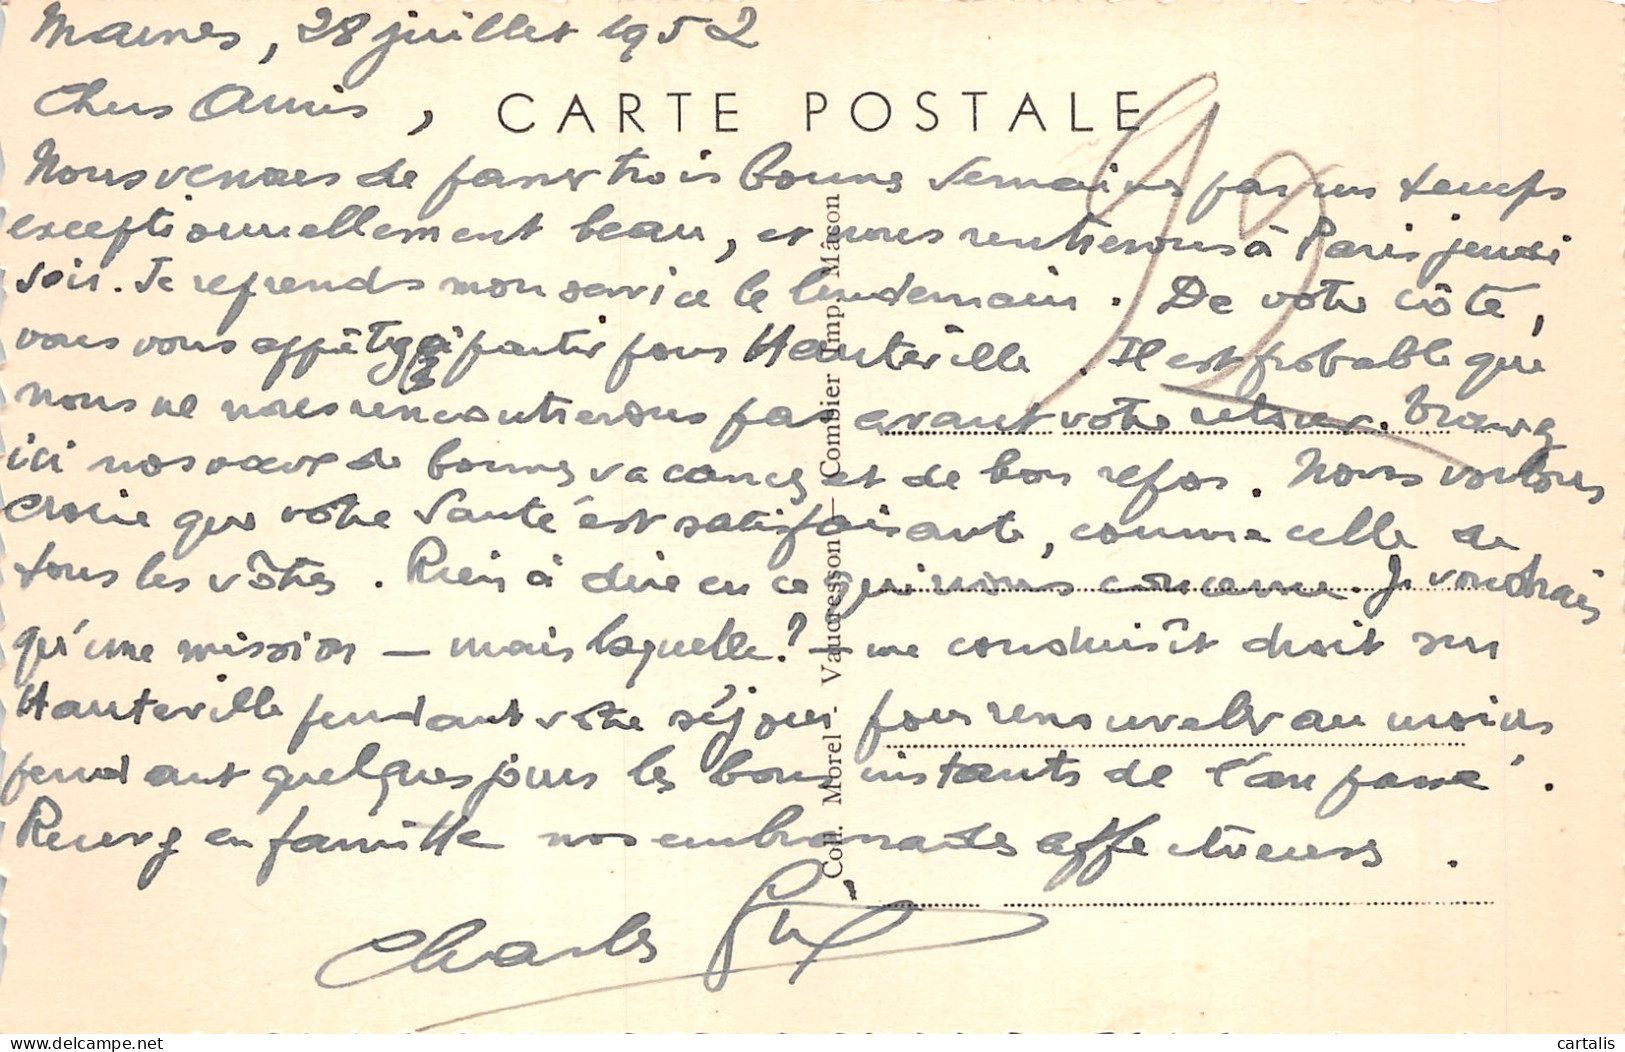 28 juillet 1952
Chers Amis,
CARTE POSTALE
Nous venons de passer trois bonnes semaines par un temps
exceptionnellement beau, et nous rentrerons à Paris jeudi
soir. Je reprends mon service le lendemain. De votre côté,
vous vous apprêtez à partir pour Hauteville. Il est probable que
nous ne nous rencontrerons pas avant votre retour. Trouvez
ici nos vœux de bonnes vacances et de bon repos. Nous voulons
croire que votre santé est satisfaisante, comme celle de
tous les vôtres. Rien à dire en ce qui nous concerne. Je voudrais
qu'une mission — mais laquelle ? — me conduisît droit sur
Hauteville pendant votre séjour pour renouveler au moins
pendant quelques jours les bons instants de l'an passé.
Recevez en famille nos embrassades affectueuses.
Charles
Coll. Morel - Vaucresson — Combier Imp. Mâcon
cartalis